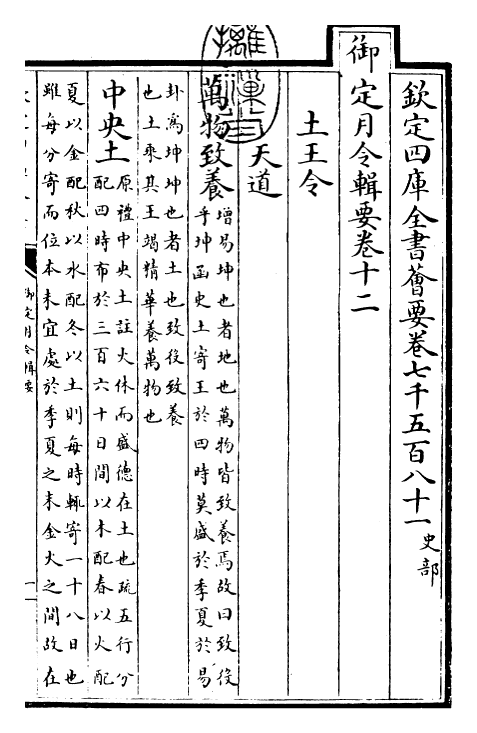 欽定四庫全書薈要卷七千五百八十一史部
御定月令輯要卷十二
土王令
天道
萬物致養增易坤也者地也萬物皆致養焉故曰致役
乎坤函史土寄王於四時莫盛於季夏於易
卦為坤坤也者土也致役致養
也土乘其王竭精華養萬物也
中央土原禮中央土註火休而盛德在土也疏五行分
配四時布於三百六十日間以木配春以火配
夏以金配秋以水配冬以土則每時輒寄一十八日也
雖每分寄而位本未宜處於季夏之末金火之間故在
御定月令輯要
一